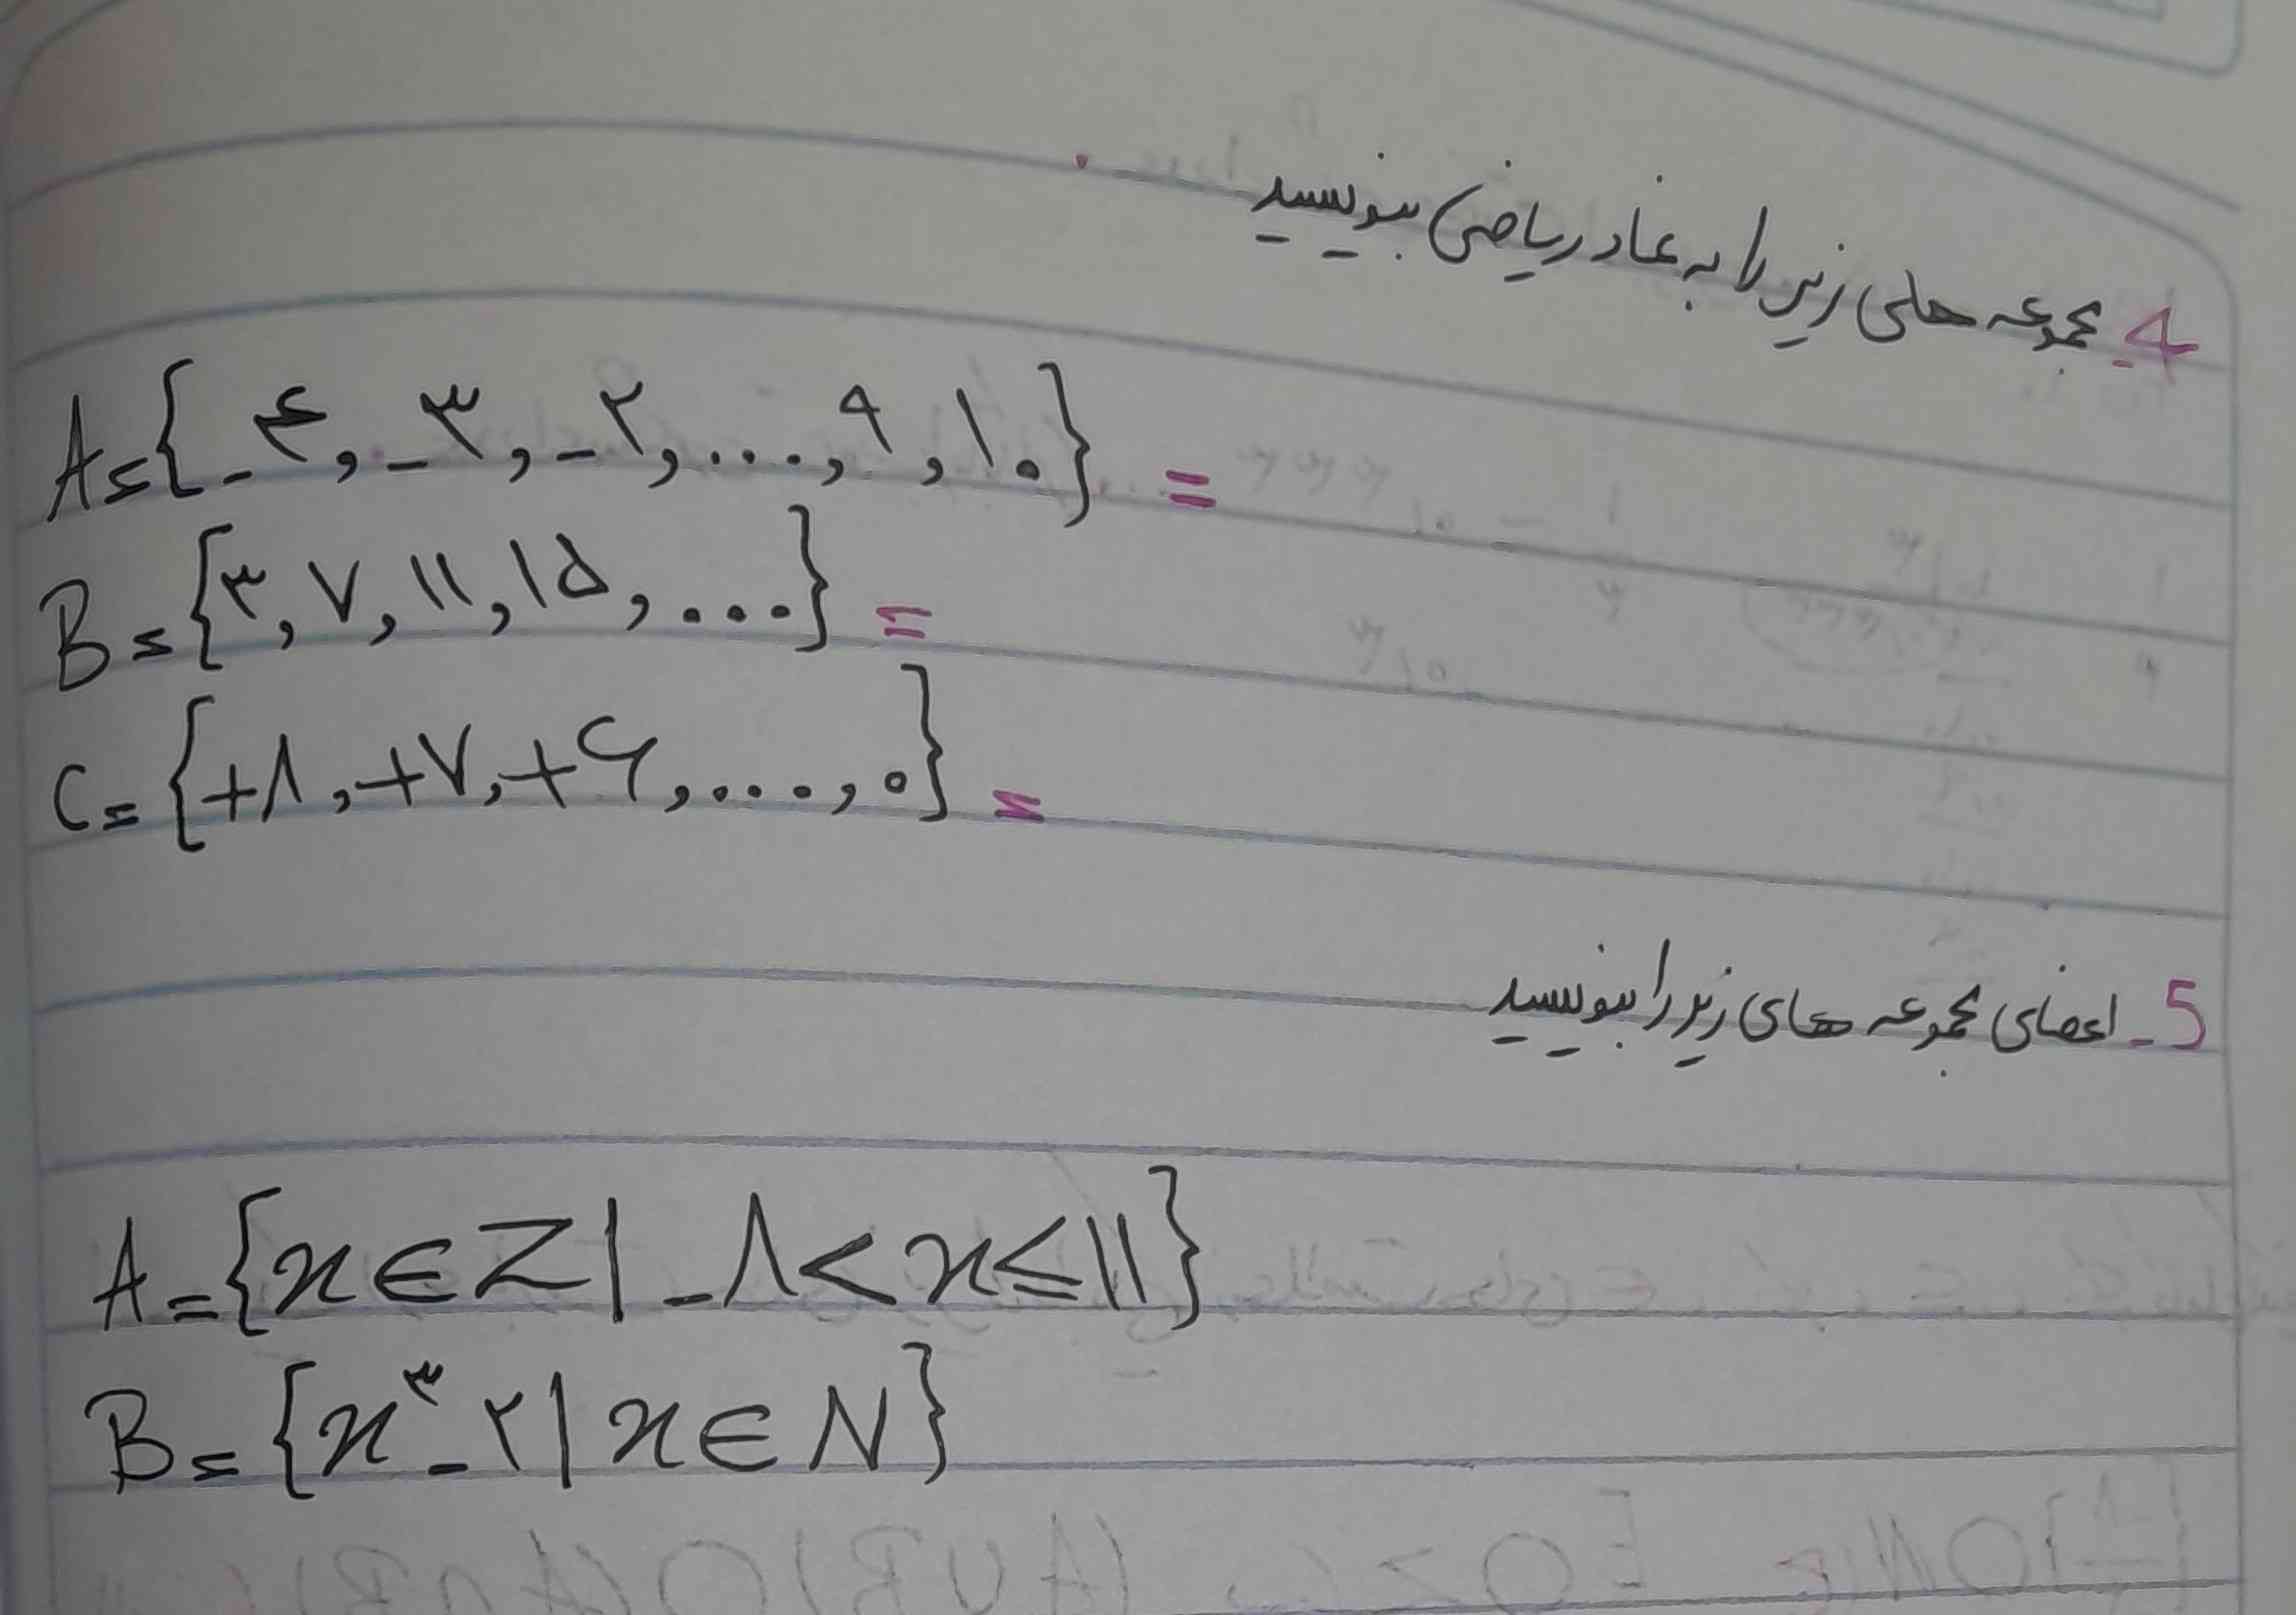 4_ مجموعه های زیر را به نماد ریاضی بنویسید.
A = {-۴, -۳, -۲, ..., ۹, ۱۰} =
B = {۳, ۷, ۱۱, ۱۵, ...} =
C = {+۸, +۷, +۶, ..., ۰} =
5_ اعضای مجموعه های زیر را بنویسید
A = {x ∈ Z | -۸ < x ≤ ۱۱}
B = {x^۳ - ۲ | x ∈ N}